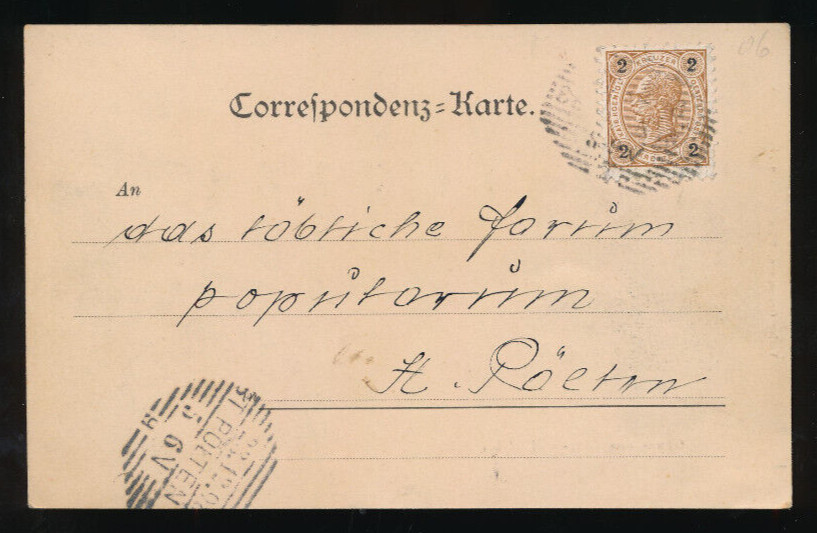 06
2 KREUZER 2
2 2
Correſpondenz=Karte.
An
das löbliche forum
popularum
St. Pölten
ST. PÖLTEN
5 6V